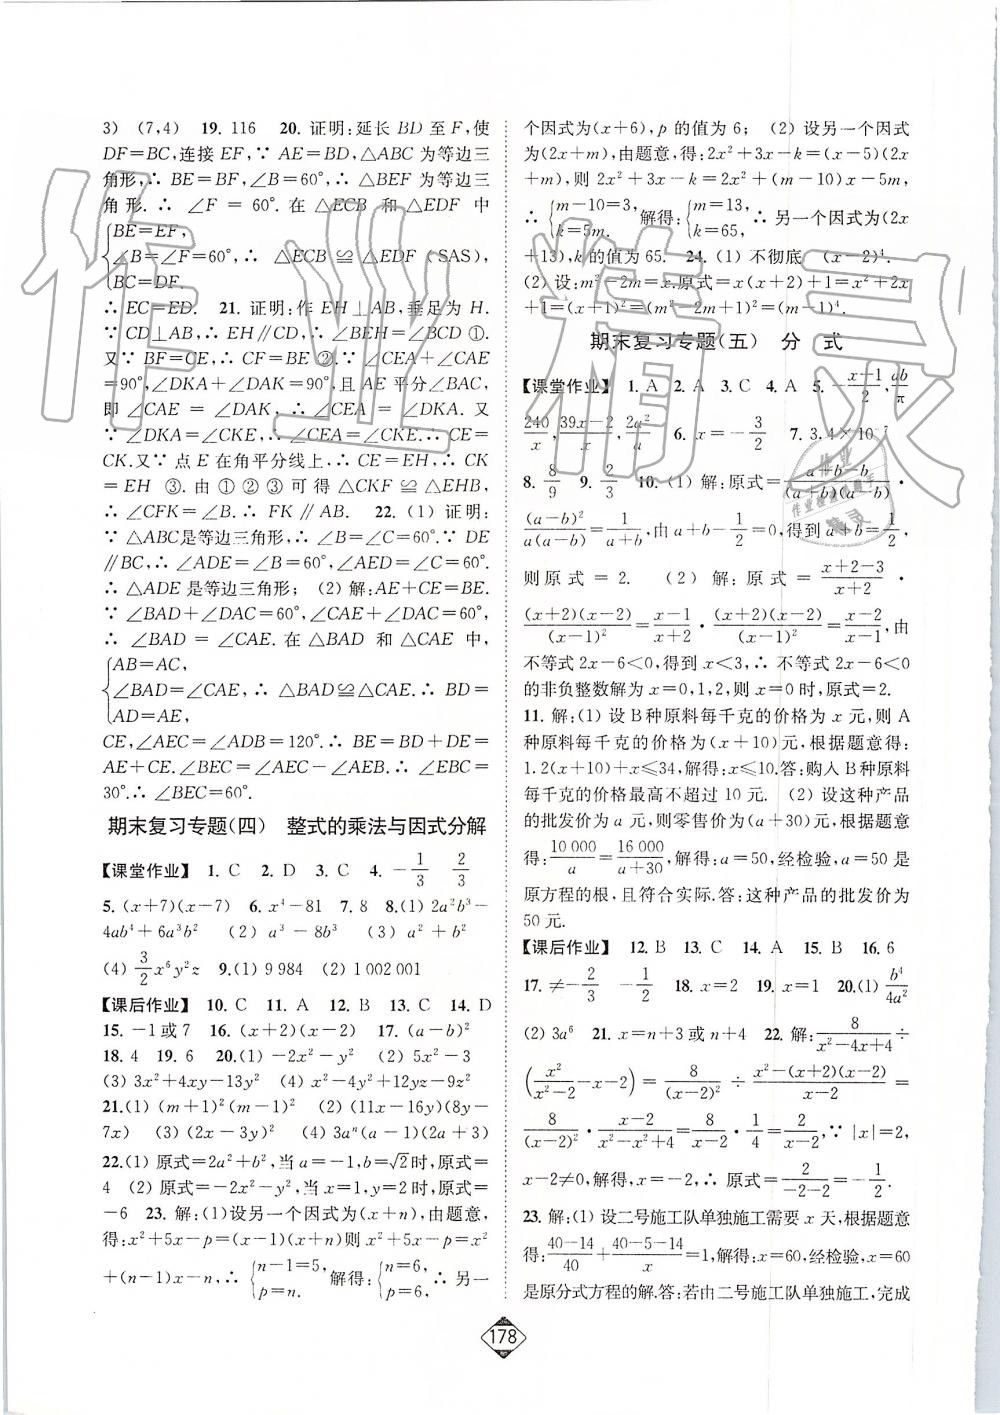 3) (7,4) 19. 116 20. 证明:延长 BD 至 F,使
DF=BC,连接 EF,∵ AE=BD,△ABC 为等边三
角形,∴ BE=BF,∠B=60°,∴ △BEF 为等边三
角形.∴ ∠F = 60°.在 △ECB 和 △EDF 中
{BE=EF,
∠B=∠F=60°,∴ △ECB ≌ △EDF (SAS),
BC=DF.
∴EC=ED. 21. 证明:作 EH⊥AB,垂足为 H.
∵CD⊥AB,∴EH∥CD,∴∠BEH=∠BCF ①.
又∵BF=CE,∴CF=BE ②.∵∠CEA+∠CAE
=90°,∠DKA+∠DAK=90°,且AE平分∠BAC,
即∠CAE = ∠DAK,∴∠CEA = ∠DKA. 又
∵∠DKA=∠CKE,∴∠CEA=∠CKE.∴CE=
CK.又∵ 点 E 在角平分线上,∴CE=EH,∴CK
=EH ③.由 ① ② ③ 可得 △CKF≌△EHB,
∴∠CFK=∠B.∴ FK∥AB. 22. (1) 证明:
∵△ABC是等边三角形,∴∠B=∠C=60°.∵DE
∥BC,∴∠ADE=∠B=60°,∠AED=∠C=60°.
∴△ADE 是等边三角形; (2) 解:AE+CE=BE.
∵∠BAD+∠DAC=60°,∠CAE+∠DAC=60°,
∴ ∠BAD = ∠CAE. 在 △BAD 和 △CAE 中,
{AB=AC,
∠BAD=∠CAE,∴ △BAD≌△CAE.∴ BD=
AD=AE,
CE,∠AEC=∠ADB=120°.∴ BE=BD+DE=
AE+CE.∠BEC=∠AEC-∠AEB.∴∠EBC=
30°.∴∠BEC=60°.
期末复习专题(四) 整式的乘法与因式分解
【课堂作业】 1. C 2. D 3. C 4. -1/3 2/3
5. (x+7)(x-7) 6. x⁴-81 7. 8 8.(1) 2a²b³-
4ab⁴+6a³b² (2) a³-8b³ (3) a²+b²
(4) 3/2x⁶y²z 9.(1) 9 984 (2) 1 002 001
【课后作业】 10. C 11. A 12. B 13. C 14. D
15. -1或7 16. (x+2)(x-2) 17. (a-b)²
18. 4 19. 6 20.(1) -2x²-y² (2) 5x²-3
(3) 3x²+4xy-13y² (4) 4x²-y²+6yz-9z²
21.(1) (m+1)²(m-1)² (2) (11x-16y)(8y-
7x) (3) (2x-3y)² (4) 3aⁿ(a-1)(2a-3)
22.(1) 原式=2a²+b²,当 a=-1,b=√2时,原式=
4 (2) 原式=-2x²-y²,当 x=1,y=2时,原式=
-6 23. 解:(1)设另一个因式为(x+n),由题意,
得:x²+5x-p=(x-1)(x+n)则 x²+5x-p=x²
+(n-1)x-n,∴ {n-1=5, p=n. 解得:{n=6, p=6, ∴ 另一
个因式为(x+6),p 的值为 6; (2) 设另一个因式
为(2x+m),由题意,得:2x²+3x-k=(x-5)(2x
+m),则 2x²+3x-k=2x²+(m-10)x-5m,
∴ {m-10=3, k=5m. 解得:{m=13, k=65, ∴ 另一个因式为(2x
+13),k 的值为 65. 24. (1) 不彻底 (x-2)⁴.
(2) 设:m²-2m=x.原式=x(x+2)+1=x²+2x
+1=(x+1)²=(m²-2m+1)²=(m-1)⁴.
期末复习专题(五) 分 式
【课堂作业】 1. A 2. A 3. C 4. A 5. -(x-1)/2,ab/π
240/x,(39x-2)/x,2a²/a 6. x=-3/2 7. 3.4×10⁻⁷
8. 8/9 9. 2/3 10.(1) 解:原式=(a+b-b)/((a+b)(a-b))·
(a-b)²/(a(a-b))=1/(a+b),由 a+b-1/2=0,得到 a+b=1/2,
则原式 = 2. (2) 解:原式=(x+2-3)/(x+2)·
((x+2)(x-2))/(x-1)²=(x-1)/(x+2)·((x+2)(x-2))/(x-1)²=(x-2)/(x-1),由
不等式 2x-6<0,得到 x<3,∴ 不等式 2x-6<0
的非负整数解为 x=0,1,2,则 x=0时,原式=2.
11. 解:(1) 设 B 种原料每千克的价格为 x 元,则 A
种原料每千克的价格为(x+10)元,根据题意得:
1.2(x+10)+x≤34,解得:x≤10.答:购入 B 种原料
每千克的价格最高不超过 10 元. (2) 设这种产品
的批发价为 a 元,则零售价为(a+30)元,根据题意
得:10 000/a=16 000/(a+30),解得:a=50,经检验,a=50 是
原方程的根,且符合实际.答:这种产品的批发价为
50元.
【课后作业】 12. B 13. C 14. A 15. B 16. 6
17. ≠-2/3 -1/2 18. x=2 19. x=1 20.(1) b⁴/4a²
(2) 3a⁶ 21. x=n+3 或 n+4 22. 解:8/(x²-4x+4)÷
(x²/(x-2)-x-2)=8/(x-2)²÷(x²-(x+2)(x-2))/(x-2)=
8/(x-2)²·(x-2)/(x²-x²+4)=8/(x-2)·1/4=2/(x-2),∵ |x|=2,
x-2≠0,解得,x=-2,∴ 原式=2/(-2-2)=-1/2.
23. 解:(1) 设二号施工队单独施工需要 x 天,根据题意
得:(40-14)/40+(40-5-14)/x=1,解得:x=60,经检验,x=60
是原分式方程的解.答:若由二号施工队单独施工,完成
178
作业精灵